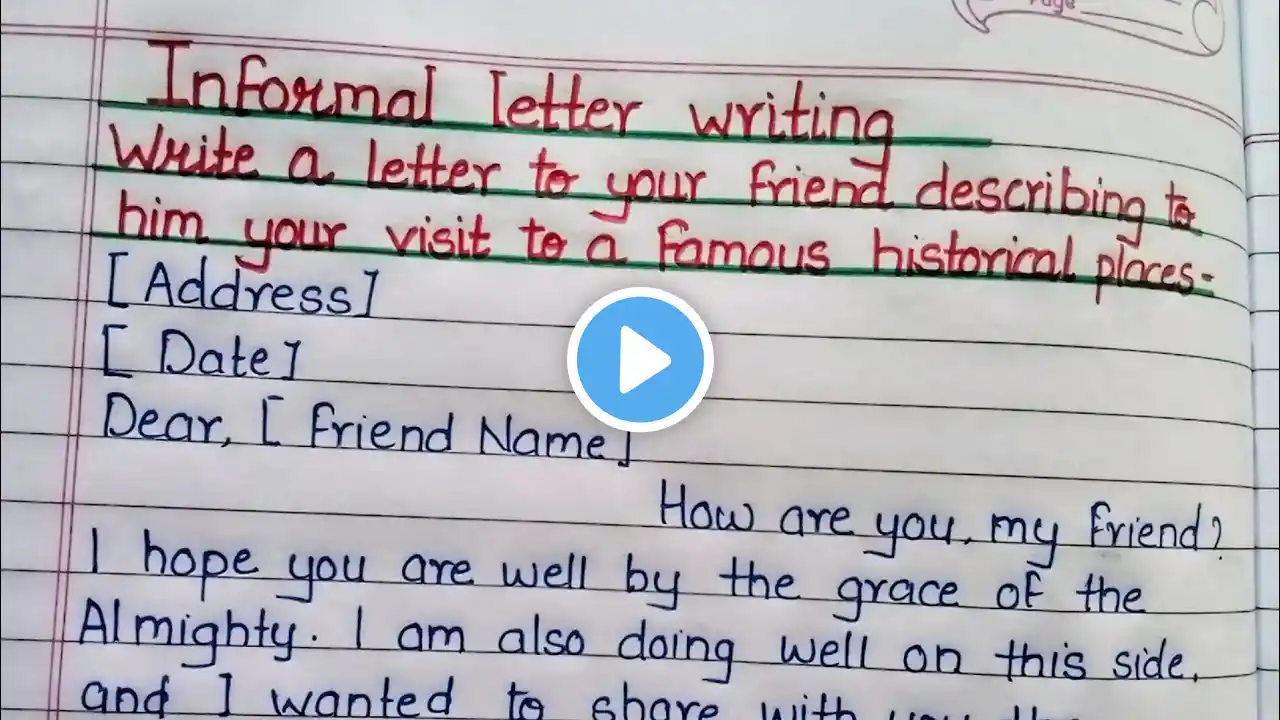 Page
Informal letter writing
Write a letter to your friend describing to
him your visit to a famous historical places-
[Address]
[ Date]
Dear, [ Friend Name]
How are you, my friend?
I hope you are well by the grace of the
Almighty. I am also doing well on this side,
and I wanted to share with you the